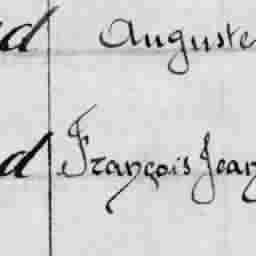 d Auguste
d François Jean